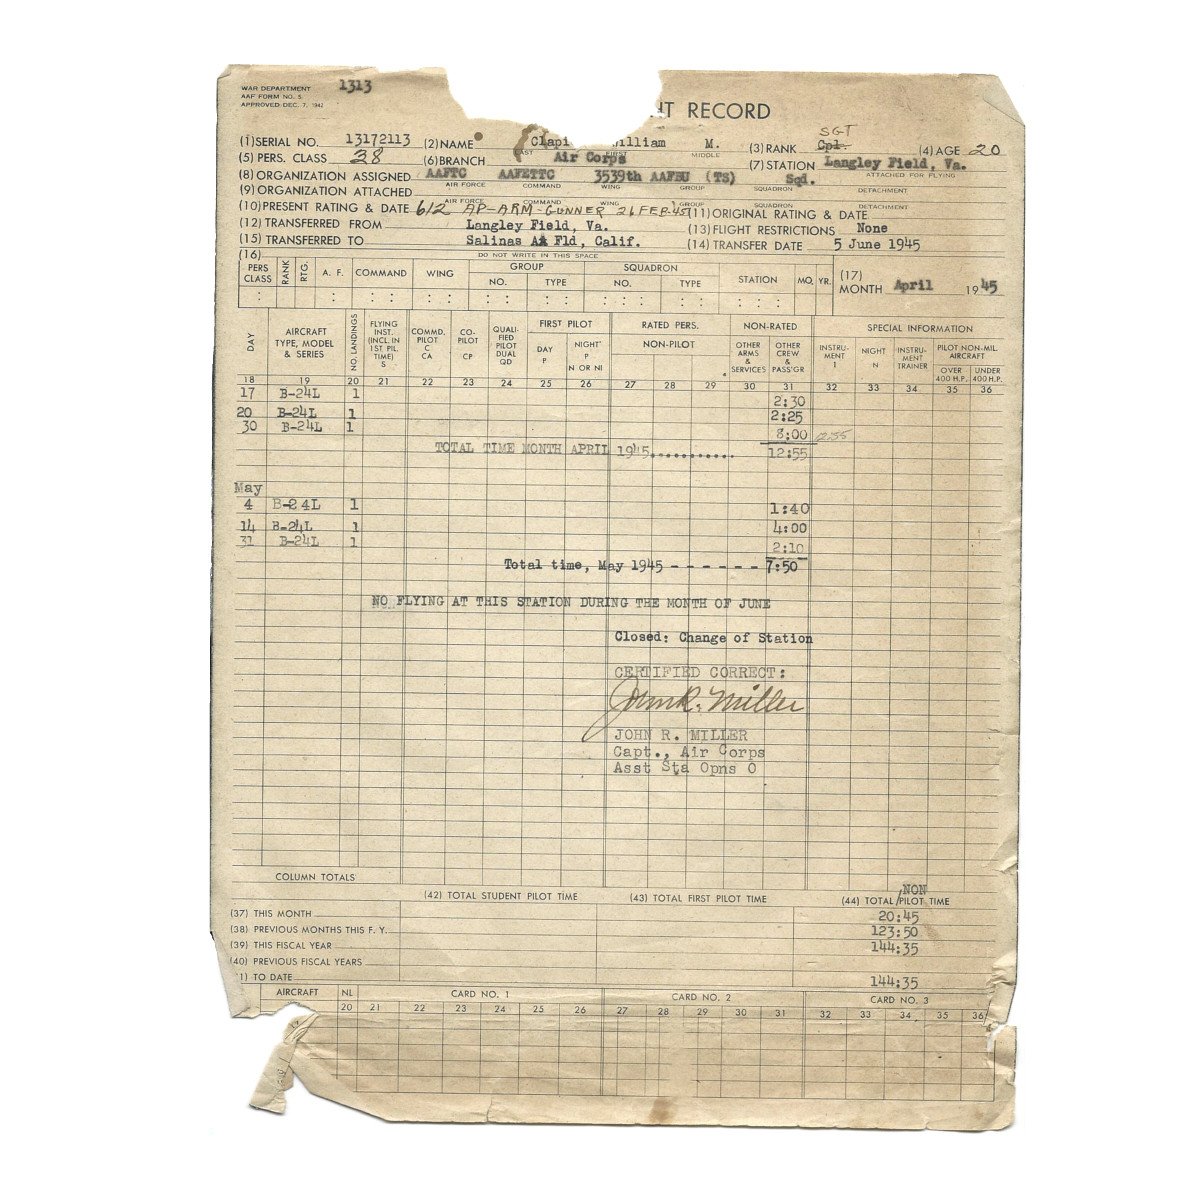 WAR DEPARTMENT
AAF FORM NO. 5
APPROVED DEC. 7, 1942
1313
HT RECORD
(1) SERIAL NO. 13172113 (2) NAME Clapi illiam M. (3) RANK Cpl. SGT (4) AGE 20
LAST FIRST MIDDLE
(5) PERS. CLASS 38 (6) BRANCH Air Corps (7) STATION Langley Field, Va.
ATTACHED FOR FLYING
(8) ORGANIZATION ASSIGNED AAFTC AAFETTC 3539th AAFBU (TS) Sqd.
AIR FORCE COMMAND WING GROUP SQUADRON DETACHMENT
(9) ORGANIZATION ATTACHED
AIR FORCE COMMAND WING GROUP SQUADRON DETACHMENT
(10) PRESENT RATING & DATE 612 AP-ARM-GUNNER 26 FEB-45 (11) ORIGINAL RATING & DATE
(12) TRANSFERRED FROM Langley Field, Va. (13) FLIGHT RESTRICTIONS None
(15) TRANSFERRED TO Salinas AA Fld, Calif. (14) TRANSFER DATE 5 June 1945
(16) DO NOT WRITE IN THIS SPACE
PERS CLASS RANK RTG. A. F. COMMAND WING GROUP NO. TYPE SQUADRON NO. TYPE STATION MO. YR. (17) MONTH April 1945
DAY AIRCRAFT TYPE, MODEL & SERIES NO. LANDINGS FLYING INST. (INCL. IN 1ST PIL. TIME) S COMMD. PILOT C CA CO-PILOT CP QUALIFIED PILOT DUAL QD FIRST PILOT DAY P NIGHT P N OR NI RATED PERS. NON-PILOT NON-RATED OTHER ARMS & SERVICES OTHER CREW & PASS'GR SPECIAL INFORMATION INSTRUMENT I NIGHT N INSTRUMENT TRAINER PILOT NON-MIL. AIRCRAFT OVER 400 H.P. UNDER 400 H.P.
18 19 20 21 22 23 24 25 26 27 28 29 30 31 32 33 34 35 36
17 B-24L 1 2:30
20 B-24L 1 2:25
30 B-24L 1 8:00 12:55
TOTAL TIME MONTH APRIL 1945........... 12:55
May
4 B-24L 1 1:40
14 B-24L 1 4:00
31 B-24L 1 2:10
Total time, May 1945 - - - - - - - 7:50
NO FLYING AT THIS STATION DURING THE MONTH OF JUNE
Closed: Change of Station
CERTIFIED CORRECT:
John R. Miller
JOHN R. MILLER
Capt., Air Corps
Asst Sta Opns O
COLUMN TOTALS
(42) TOTAL STUDENT PILOT TIME (43) TOTAL FIRST PILOT TIME (44) TOTAL / NON PILOT TIME
(37) THIS MONTH 20:45
(38) PREVIOUS MONTHS THIS F. Y. 123:50
(39) THIS FISCAL YEAR 144:35
(40) PREVIOUS FISCAL YEARS
1) TO DATE 144:35
AIRCRAFT NL CARD NO. 1 CARD NO. 2 CARD NO. 3
20 21 22 23 24 25 26 27 28 29 30 31 32 33 34 35 36